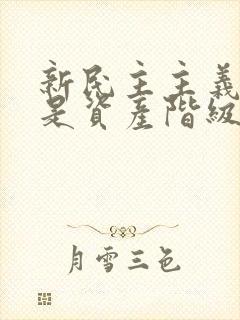 新民主主義
是資產階級
月雪三色